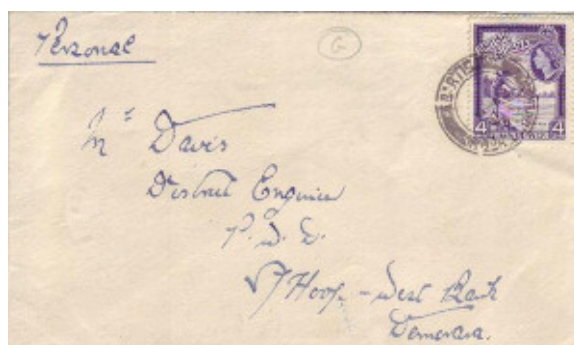 Personal
G
Mr Davis
District Engineer
P. W. D.
Hoop - West Bank
Demerara.
4 4